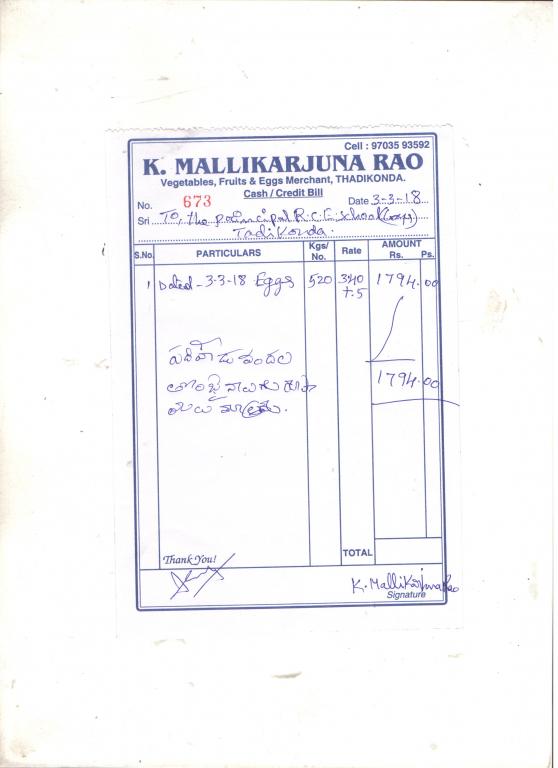 Cell : 97035 93592
K. MALLIKARJUNA RAO
Vegetables, Fruits & Eggs Merchant, THADIKONDA.
Cash / Credit Bill
No. 673 Date 3-3-18
Sri To, the principal R.C.E. School (Boys)
Tadikonda.
S.No. PARTICULARS Kgs/ No. Rate AMOUNT Rs. Ps.
1 Dated - 3-3-18 Eggs 520 340 1794.00
+.5
పదిహేడు వందల
తొంభై నాలుగు రూపా
యలు మాత్రమే.
1794.00
TOTAL
Thank You!
K. Mallikarjuna Rao
Signature